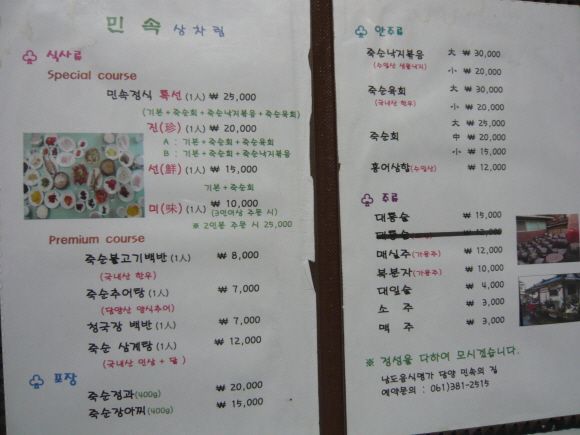 민속 상차림
식사류
Special course
민속정식 특선 (1人) ₩ 25,000
(기본 + 죽순회 + 죽순낙지볶음 + 죽순육회)
진(珍) (1人) ₩ 20,000
A : 기본 + 죽순회 + 죽순육회
B : 기본 + 죽순회 + 죽순낙지볶음
선(鮮) (1人) ₩ 15,000
기본 + 죽순회
미(味) (1人) ₩ 10,000
(3인이상 주문 시)
※ 2인분 주문 시 25,000
Premium course
죽순불고기백반 (1人) ₩ 8,000
(국내산 한우)
죽순추어탕 (1人) ₩ 7,000
(담양산 양식추어)
청국장 백반 (1人) ₩ 7,000
죽순 삼계탕 (1人) ₩ 12,000
(국내산 인삼 + 닭)
포장
죽순정과(400g) ₩ 20,000
죽순장아찌(400g) ₩ 15,000
안주류
죽순낙지볶음 大 ₩ 30,000
(수입산 생물낙지) 小 ₩ 20,000
죽순육회 大 ₩ 30,000
(국내산 한우) 小 ₩ 20,000
大 ₩ 25,000
죽순회 中 ₩ 20,000
小 ₩ 15,000
홍어삼합(수입산) ₩ 12,000
주류
대통술 ₩ 15,000
매실주(가용주) ₩ 12,000
복분자(가용주) ₩ 10,000
대잎술 ₩ 4,000
소주 ₩ 3,000
맥주 ₩ 3,000
※ 정성을 다하여 모시겠습니다.
남도음식명가 담양 민속의 집
예약문의 : 061)381-2515